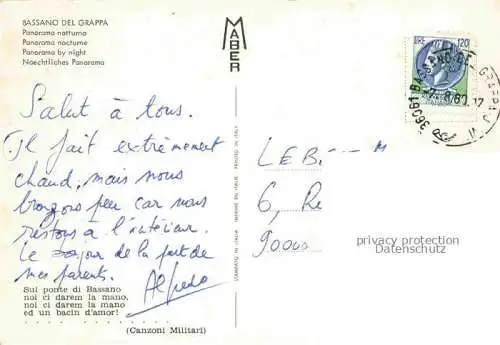 BASSANO DEL GRAPPA
Panorama notturno
Panorama nocturne
Panorama by night
Naechtliches Panorama
MABER
LIRE 120
36061 BASSANO DEL GRAPPA
Salut à tous.
Il fait extrèmement
chaud, mais nous
bronzons peu car nous
restons à l'intérieur.
Le bonjour de la part de
mes parents.
Alfredo
Sul ponte di Bassano
noi ci darem la mano,
noi ci darem la mano
ed un bacin d'amor!
(Canzoni Militari)
STAMPATO IN ITALIA
IMPRIMÉ EN ITALIE
PRINTED IN ITALY
LEB
6, Re
90000
privacy protection
Datenschutz